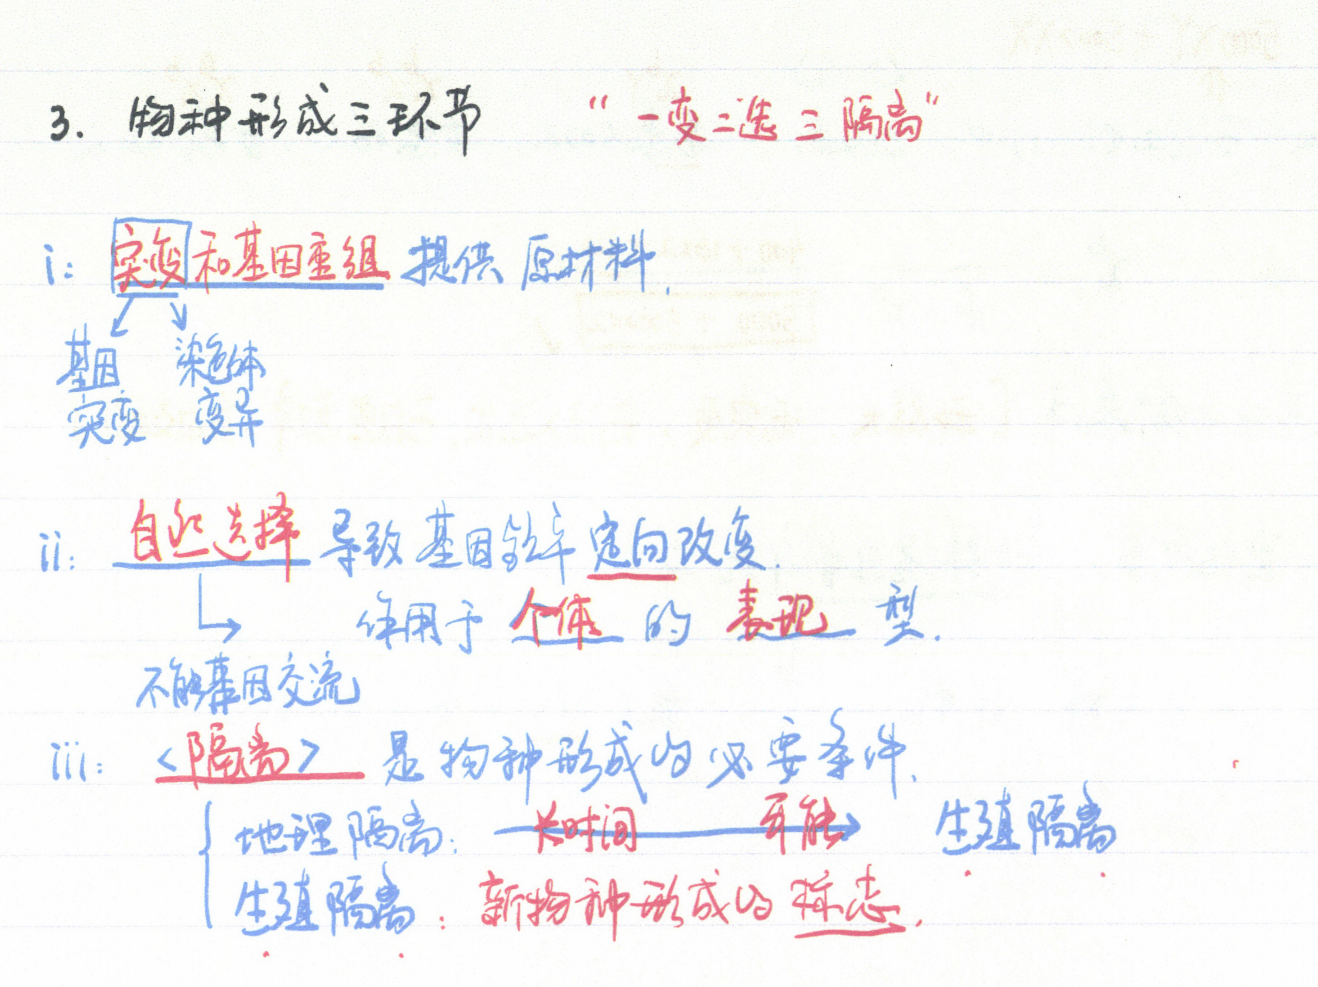 3. 物种形成三环节 “一变二选三隔离”
i: 突变和基因重组 提供原材料.
基因 染色体
突变 变异
ii: 自然选择 导致基因频率定向改变.
作用于 个体 的 表现 型.
不能基因交流
iii: <隔离> 是物种形成的必要条件.
地理隔离: 长时间 可能 生殖隔离
生殖隔离: 新物种形成的标志.